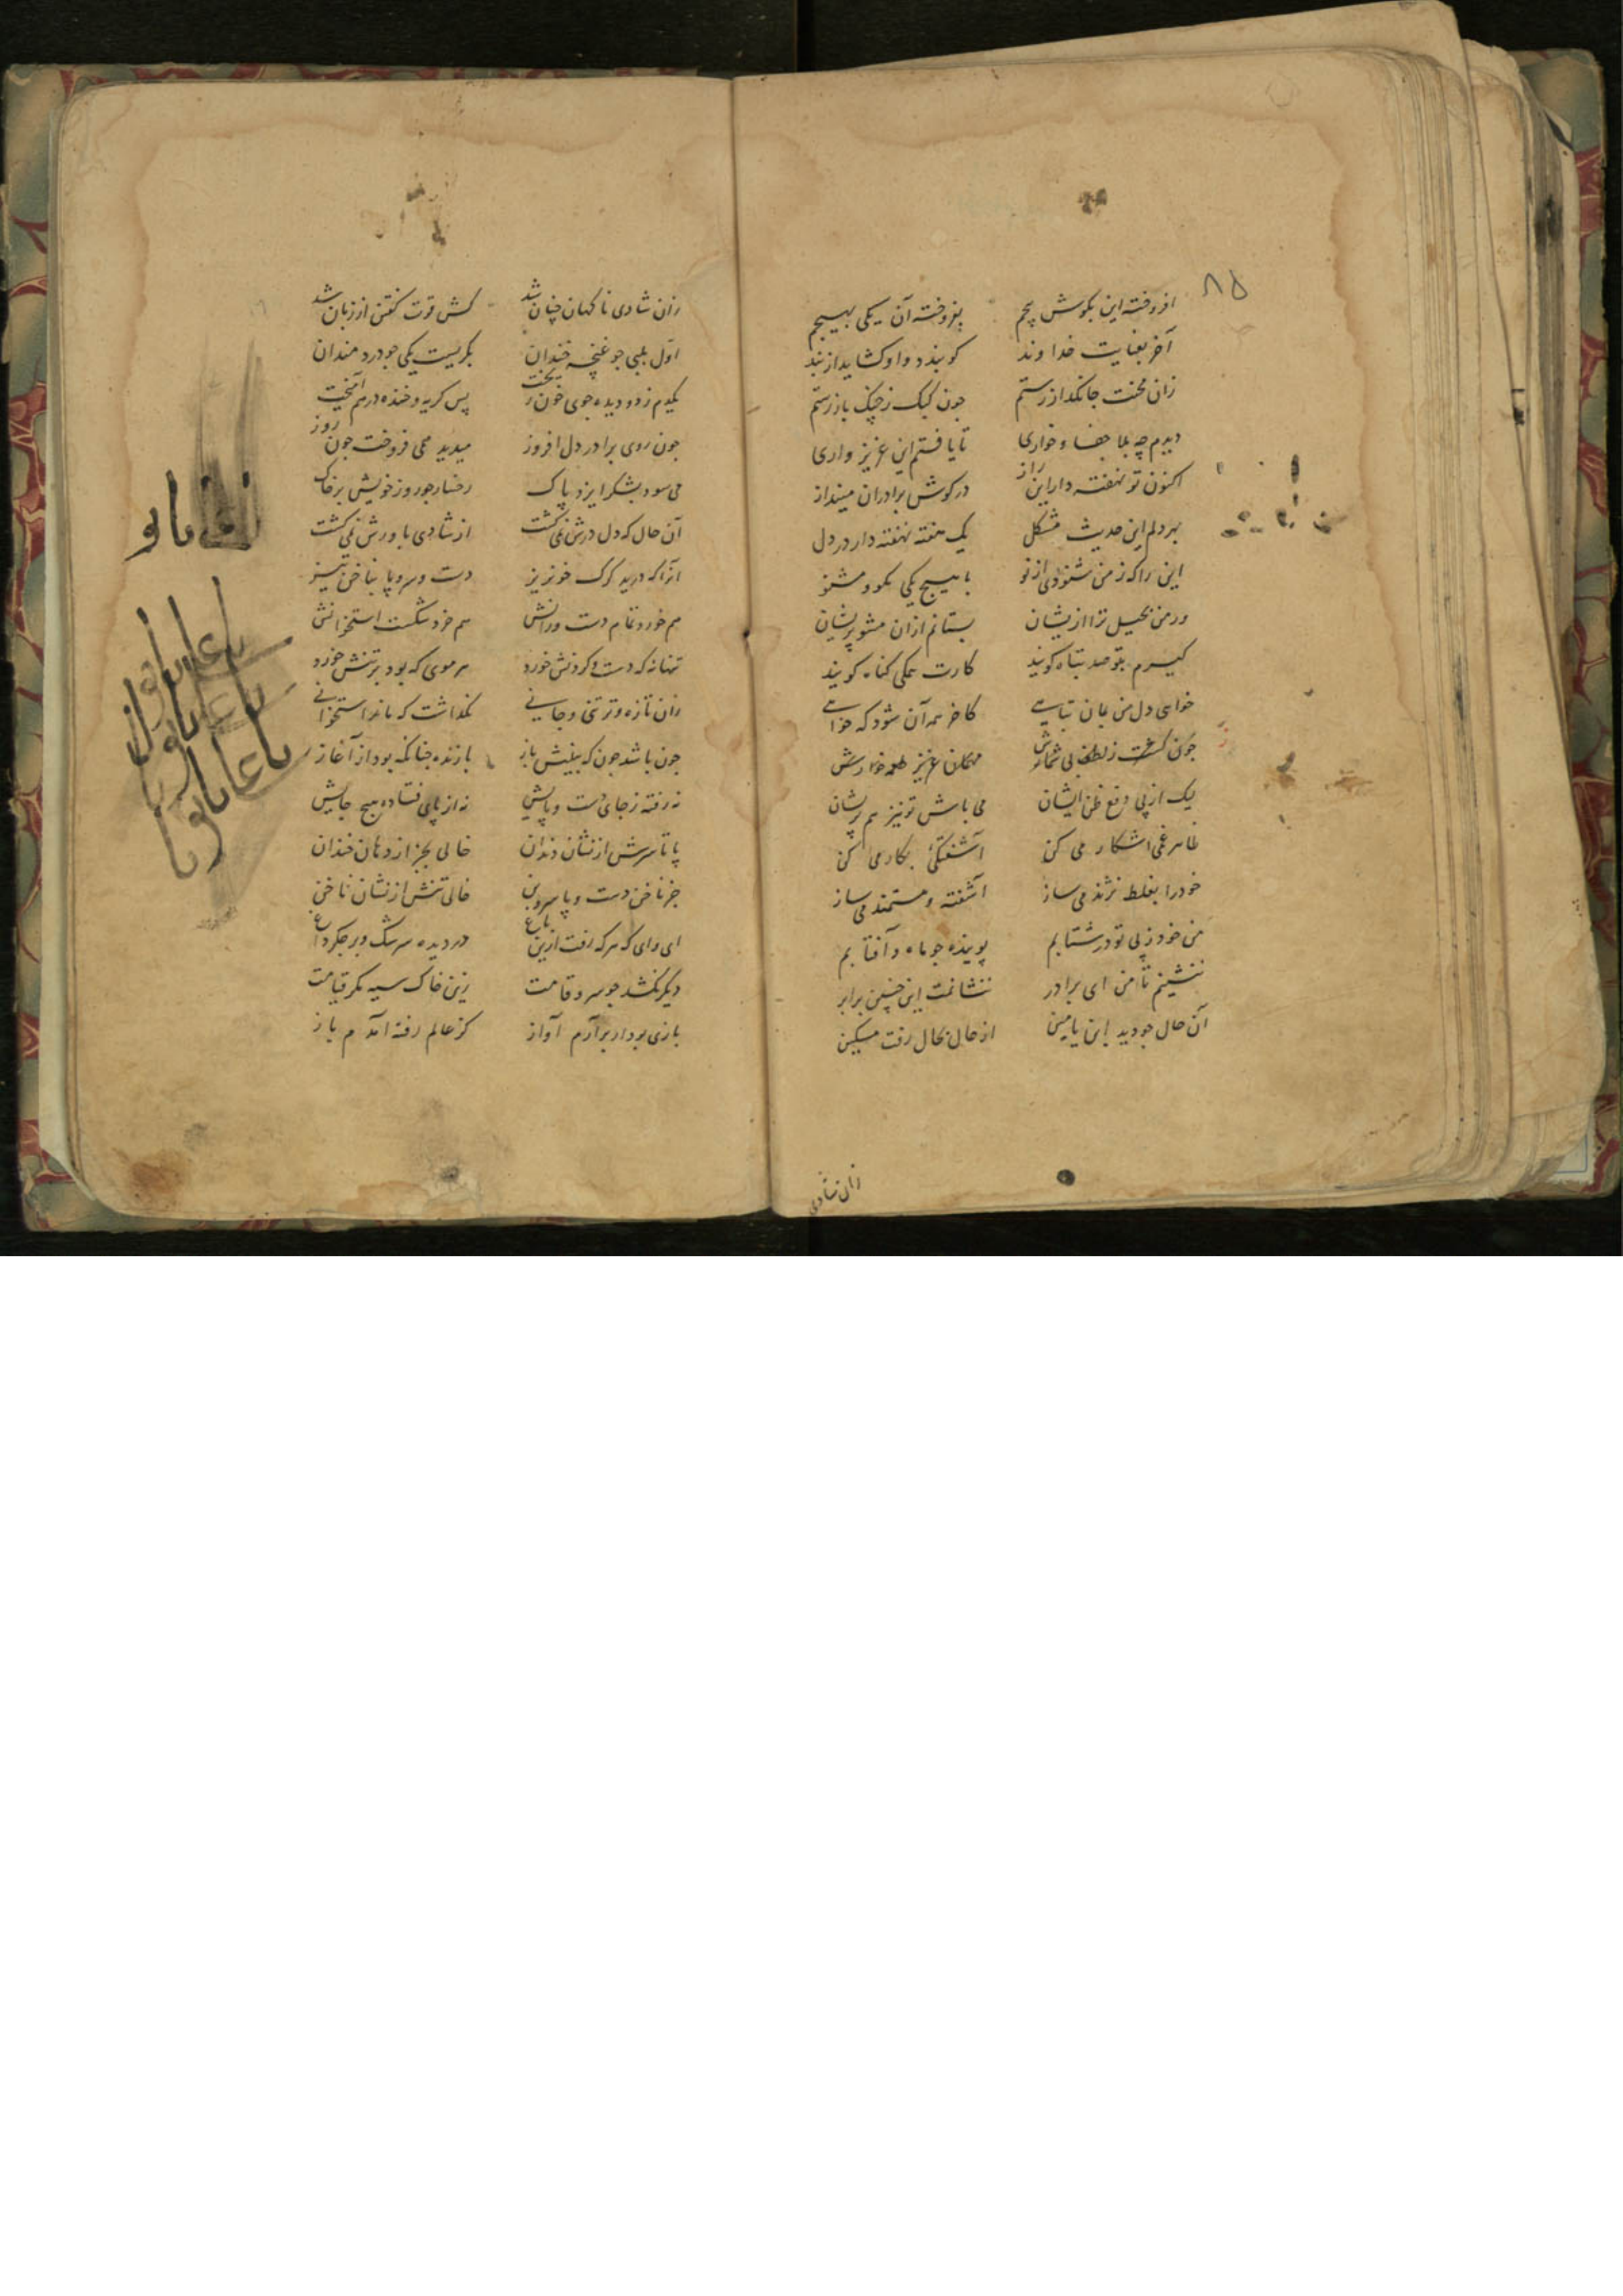 ۸۵
افروخته این بکوش پیچم بفروخته آن یکی بهیچم
آخر بعنایت خداوند کو بندد و او کشاید از بند
زان محنت جانکداز رستم چون کبک ز چنک باز رستم
دیدم چه بلا جفا و خواری تا یافتم این عزیز واری
اکنون تو نهفته دار این راز در کوش برادران مینداز
بر دلم این حدیث مشکل یک هفته نهفته دار در دل
این را که ز من شنودی از نو با هیچ یکی مکو و مشنو
ور من بحیل ترا از یشان بستانم ازان مشو پریشان
کیرم بتو صد تباه کویند کارت همکی کناه کویند
خواهی دل من بان تباهی کاخر همه آن شود که خواهی
چون کشت ز لطف بی شمارش مهمان عزیز
لیک از پی دفع ظن ایشان می باش تو نیز هم پریشان
ظاهر غمی اشکار می کن آشفتکیٔ بکار می کن
خود را بغلط نژند می ساز آشفته و مستمند می ساز
من خود ز پی تو در شتابم پوینده جو ماه و آفتابم
ننشینم تا من ای برادر ننشانمت این چنین برابر
آن حال جو دید ابن یامین از حال بحال رفت مسکین
زان شادی
زان شادی ناکهان چنان شد کش قوت کفتن از زبان شد
اول بلبی جو غنچه خندان بکریست یکی جو دردمندان
یکدم ز دو دیده جوی خون ریخت پس کریه و خنده در هم آمیخت
جون روی برادر دل افروز میدید همی فروخت جون روز
می سود بشکر ایزد پاک رخسار جو روز خویش بر خاک
آن حال که دل درش نمی کشت از شادی باورش نمی کشت
انرا که درید کرک خونریز دست و سر و پا بناخن تیز
هم خورد تمام دست و رانش هم خرد شکست استخوانش
تنها نه که دست و کردنش خورد هر موی که بود بر تنش خورد
زان تازه و تر تنی و جانی نکذاشت که ماند استخوانی
جون باشد جون که بینیش باز بازنده جنانکه بود از آغاز
نه رفته ز جای دست و پایش نه از پای فتاده هیچ جایش
پا تا سرش از نشان دندان خالی بجز از دهان خندان
جز ناخن دست و پا سر و بن خالی تنش از نشان ناخن
ای وای که هر که رفت ازین باغ در دیده سرشک و بر جکر داغ
دیکر نکشد جو سرو قامت زین خاک سیه مکر قیامت
باری بودار برآرم آواز کز عالم رفته آمدم باز